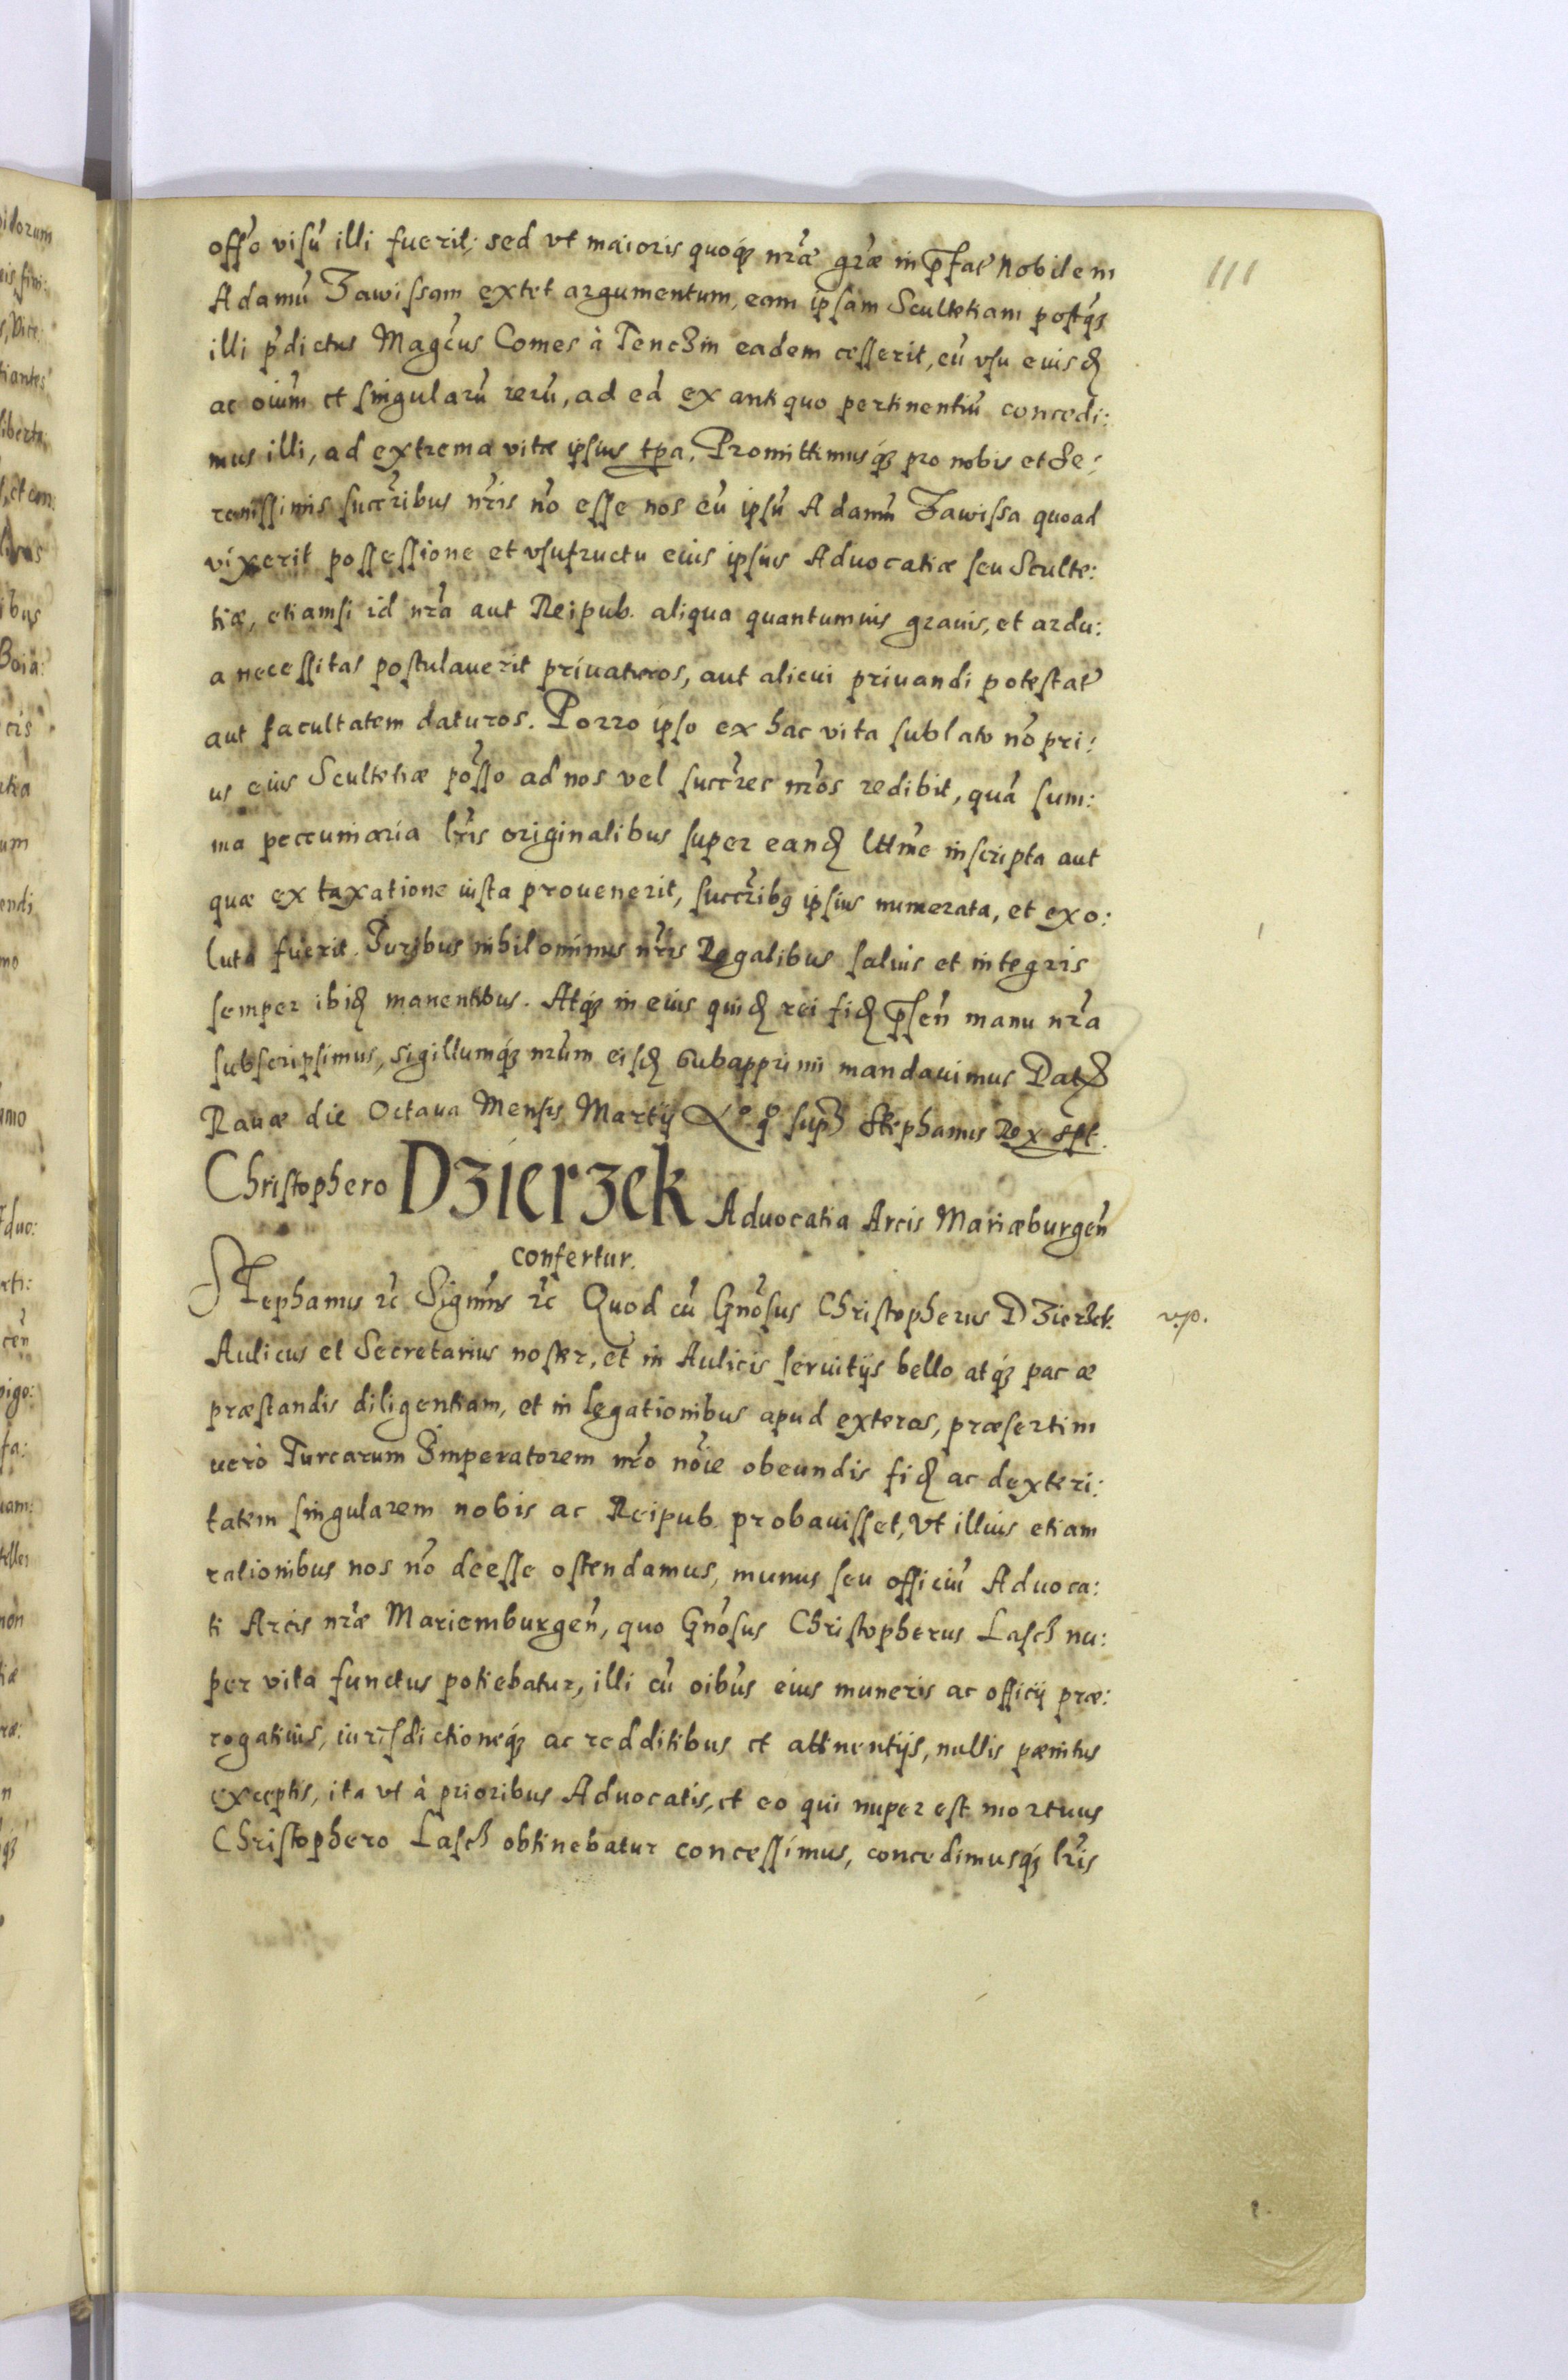 111
offo visũ illi fuerit; sed vt maioris quoqȝ nr̃æ gr̃æ in p̃fat' Nobilem
Adamũ Zawissam extet argumentum, eam ipsam Scultetiam postqȝ
illi p̃dictus Magc̃us Comes à Tenczin eadem cesserit, cũ vsu eiusđ
ac oiũm et singularũ rerũ, ad eã ex antiquo pertinentiũ concedi:
mus illi, ad extrema vitæ ipsius tp̃a. Promittimusqȝ pro nobis et Se:
renissimis succr̃ibus nr̃is nõ esse nos eũ ipsũ Adamũ Zawissa quoad
vixerit possessione et vsufructu eius ipsius Aduocatiæ seu Sculte:
tiæ, etiamsi id nr̃a aut Reipub. aliqua quantumuis grauis, et ardu:
a necessitas postulauerit priuaturos, aut alicui priuandi potestat'
aut facultatem daturos. Porro ipso ex hac vita sublato nõ pri:
us eius Scultetiæ põsso ad nos vel succr̃es nr̃os redibit, quã sum:
ma peccuniaria lr̃is originalibus super eanđ lttĩme inscripta aut
quæ ex taxatione iusta prouenerit, succr̃ibꝫ ipsius numerata, et exo:
luta fuerit. Juribus nihilominus nr̃is Regalibus saluis et integris
semper ibiđ manentibus. Atqȝ in eius quiđ rei fiđ p̃sen̄ manu nr̃a
subscripsimus, sigillumqȝ nr̃um eisđ subapprimi mandauimus Dat
Rauæ die Octaua Mensis Martij Lº qº sup̃ Stephanus Rex spt.
Christophero Dzierzek Aduocatia Arcis Mariæburgen̄
confertur.
STephanus rc̃ Signm̃s rc̃ Quod cũ Gnõsus Christopherus Dzierzek v.p.
Aulicus et Secretarius noster, et in Aulicis seruitijs bello atqȝ pacæ
præstandis diligentiam, et in legationibus apud exteros, præsertim
uerò Turcarum Imperatorem nr̃o nõie obeundis fiđ ac dexteri:
tatem singularem nobis ac Reipub. probauisset, Vt illius etiam
rationibus nos nõ deesse ostendamus, munus seu officiũ Aduoca:
ti Arcis nr̃æ Mariemburgen̄, quo Gnõsus Christopherus Lasch nu:
per vita functus potiebatur, illi cũ oibũs eius muneris ac officij præ:
rogatiuis, iurisdictioneqȝ ac redditibus et attinentijs, nullis pænitus
exceptis, ita vt à prioribus Aduocatis, et eo qui nuper est mortuus
Christophero Lasch obtinebatur concessimus, concedimusqȝ lr̃is